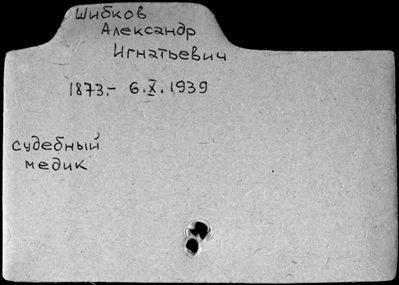 Шибков
Александр
Игнатьевич
1873.- 6.X.1939
судебный
медик